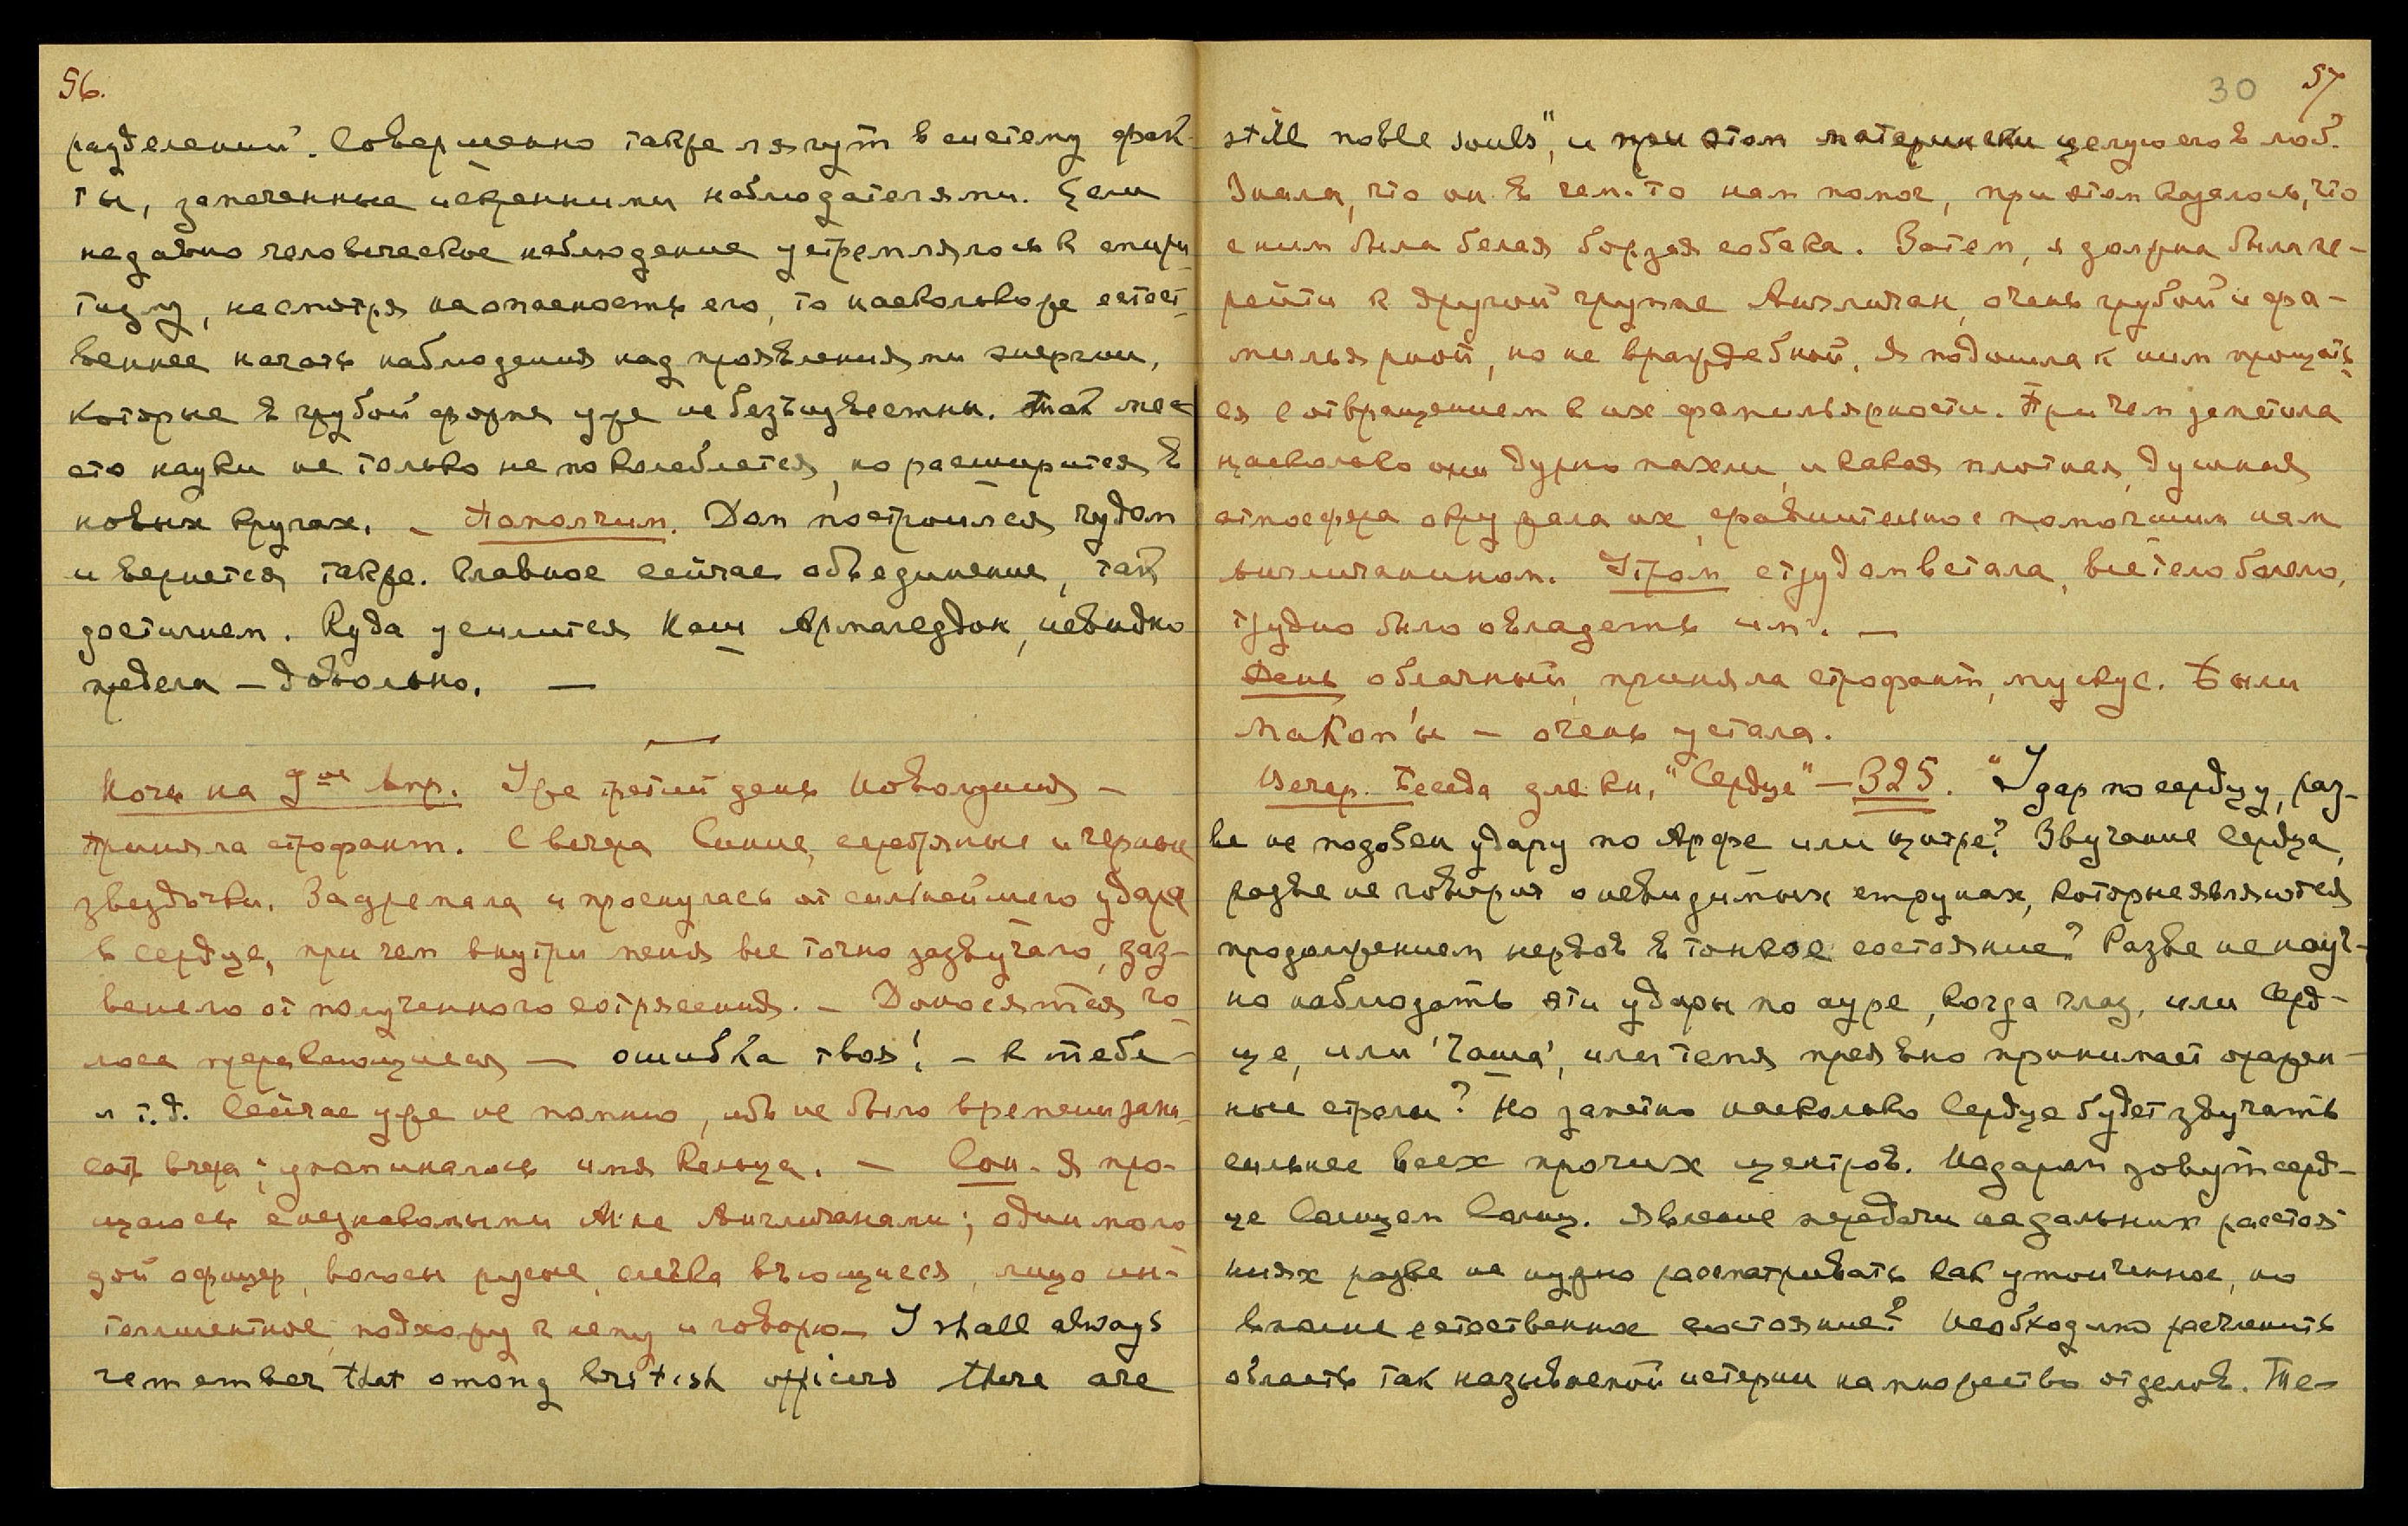 56.
разделений. Совершенно также лягут в систему фак-
ты, замеченные искренними наблюдателями. Если
недавно человеческое наблюдение устремлялось к спири-
тизму, несмотря на опасность его, то насколько же естест-
веннее начать наблюдения над проявлениями энергии,
которые в грубой форме уже не безъизвестны. Так мес-
сто науки не только не поколеблется, но расширится в
новых кругах. – Помолчим. Дом построился чудом
и вернется также. Главное сейчас объединение, так
достигнем. Куда усилится Наш Армагеддон, невидно
предела – довольно. —
Ночь на 9ое Апр. Уже третий день Новолуния –
приняла строфант. С вечера Синие, серебряные и черные
звездочки. Задремала и проснулась от сильнейшего удара
в сердце, при чем внутри меня все точно зазвучало, заз-
венело от полученного сотрясения. – Доносятся го-
лоса – ошибка твоя! – к тебе –
и т.д. Сейчас уже не помню, ибо не было времени запи-
сать вчера; упоминалось имя Кельца. — Сон. Я про-
щаюсь с незнакомыми Мне Англичанами; один моло-
дой офицер, волосы русые, слегка вьющиеся, лицо ин-
теллигентное, подхожу к нему и говорю – I shall always
remember that among british officers there are
30 57
still noble souls", и при этом матерински целую его в лоб.
Знала, что он в чем-то нам помог, при этом казалось, что
с ним была белая борзая собака. Затем, я должна была пе-
рейти к другой группе Англичан, очень грубой и фа-
мильярной, но не враждебной. Я подошла к ним прощать-
ся с отвращением к их фамильярности. При чем заметила
насколько они дурно пахли, и какая плотная, душная
атмосфера окружала их, сравнительно с помогшим нам
англичанином. Утром с трудом встала, все тело болело,
трудно было овладеть им. —
День облачный, приняла строфант, мускус. Были
МаКом'ы – очень устала.
Вечер. Беседа для кн. "Сердце" – 325. "Удар по сердцу, раз-
ве не подобен удару по Арфе или цитре? Звучание Сердца,
разве не говорит о невидимых струнах, которые являются
продолжением нервов в тонкое состояние? Разве не науч-
но наблюдать эти удары по ауре, когда глаз, или Серд-
це, или 'Чаша', или темя преявно принимает оражен-
ные стрелы? Но заметно насколько Сердце будет звучать
сильнее всех прочих центров. Недаром зовут серд-
це Солнцем Солнц. Явление передачи на дальних растоя-
ниях разве не нужно рассматривать как утонченное, но
вполне естественное состояние? Необходимо расчленить
область так называемой истерии на множество отделов. Те-